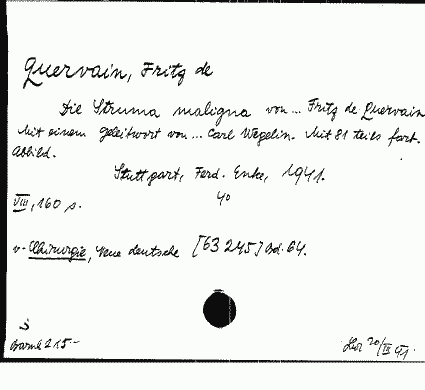 Quervain, Fritz de
Die Struma maligna von ... Fritz de Quervain
Mit einem Geleitwort von ... Carl Wegelin. Mit 81 teils farb.
Abbild.
Stuttgart, Ferd. Enke, 1941.
40
VIII, 160 s.
v. Chirurgie, Neue deutsche [63 245] Bd. 64.
215-
20/III 41